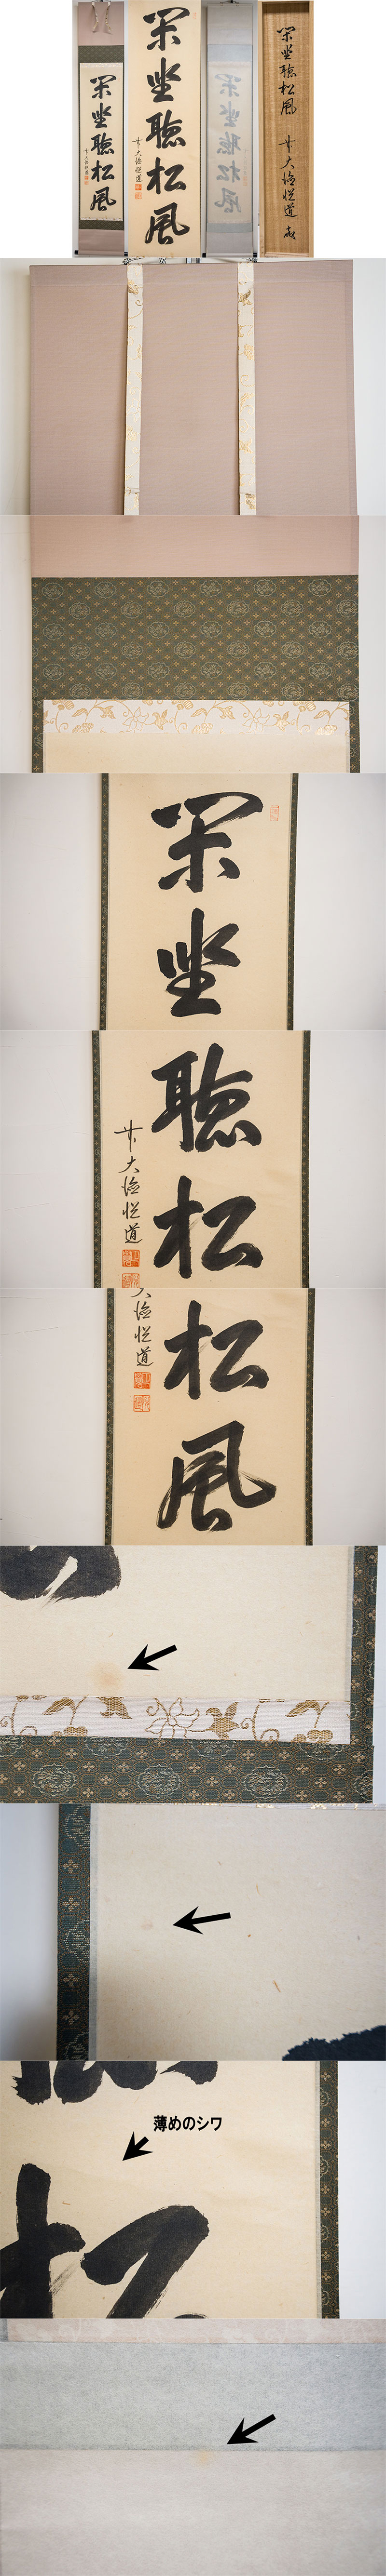 閑坐聴松風
大徳悦道
閑坐聴松風
大徳悦道
閑坐聴松風
閑坐聴松風
大徳悦道
閑坐
聴松
大徳悦道
松風
大徳悦道
松
薄めのシワ